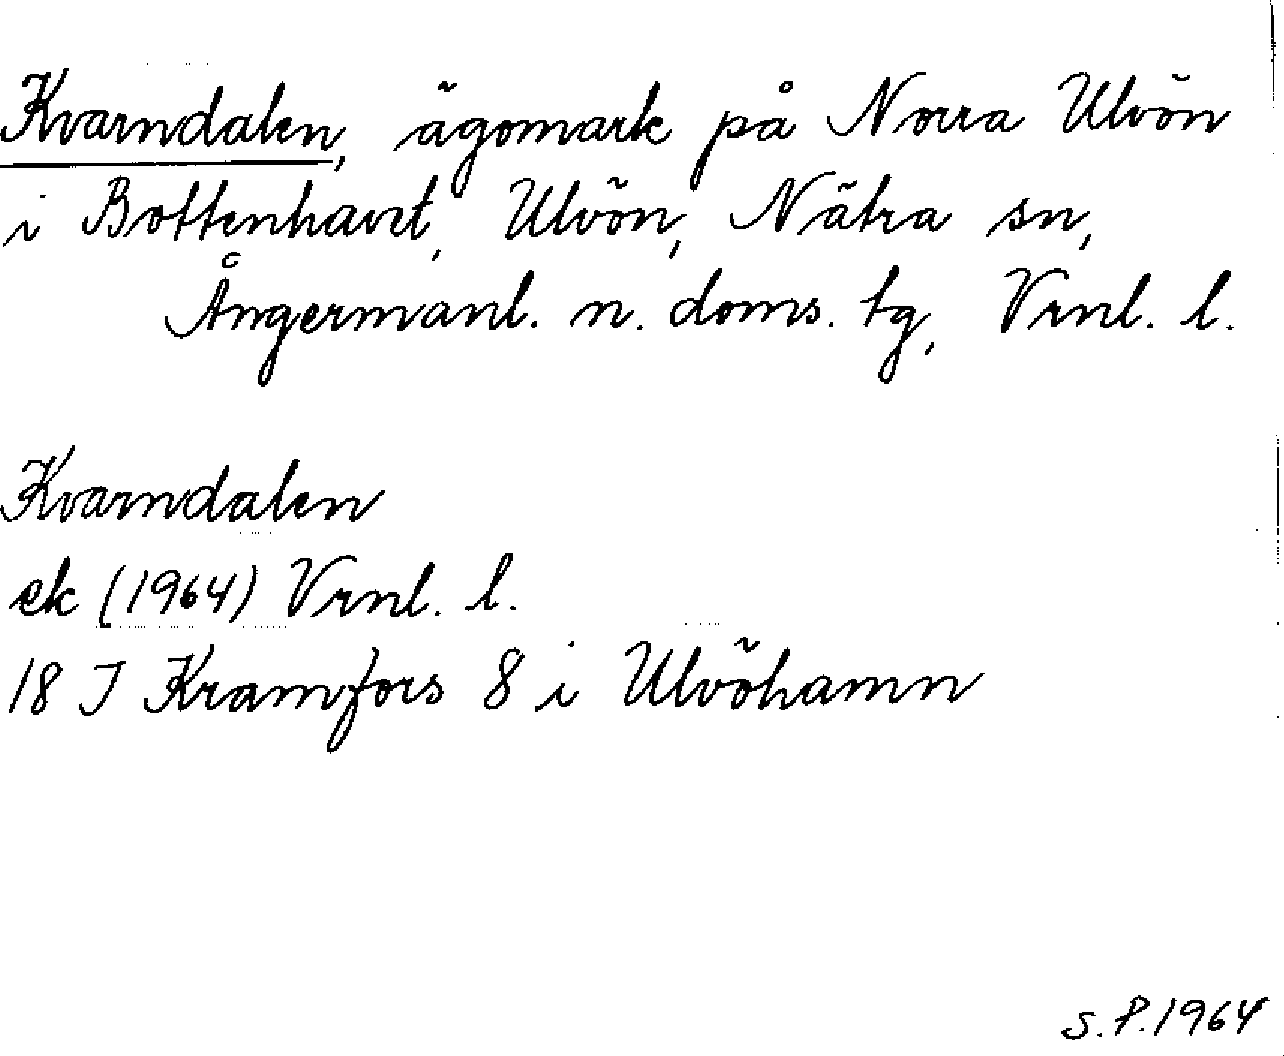 Kvarndalen, ägomark på Norra Ulvön
i Bottenhavet, Ulvön, Nätra sn,
Ångermanl. n. doms. tg, Vrnl. l.
Kvarndalen
ek (1964) Vrnl. l.
18 I Kramfors 8 i Ulvöhamn
S.P.1964